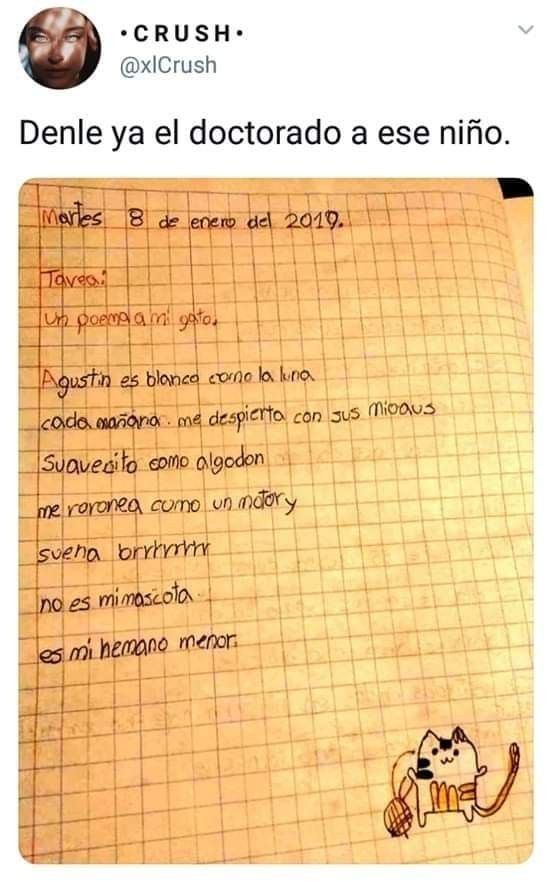 •CRUSH•
@xlCrush
Denle ya el doctorado a ese niño.
Martes 8 de enero del 2019.
Tarea:
Un poema a mi gato.
Agustin es blanco como la luna
cada mañana. me despierta con sus mioaus
Suavecito como algodon
me roronea como un motor y
suena brrrrrrrr
no es mi mascota.
es mi hemano menor.